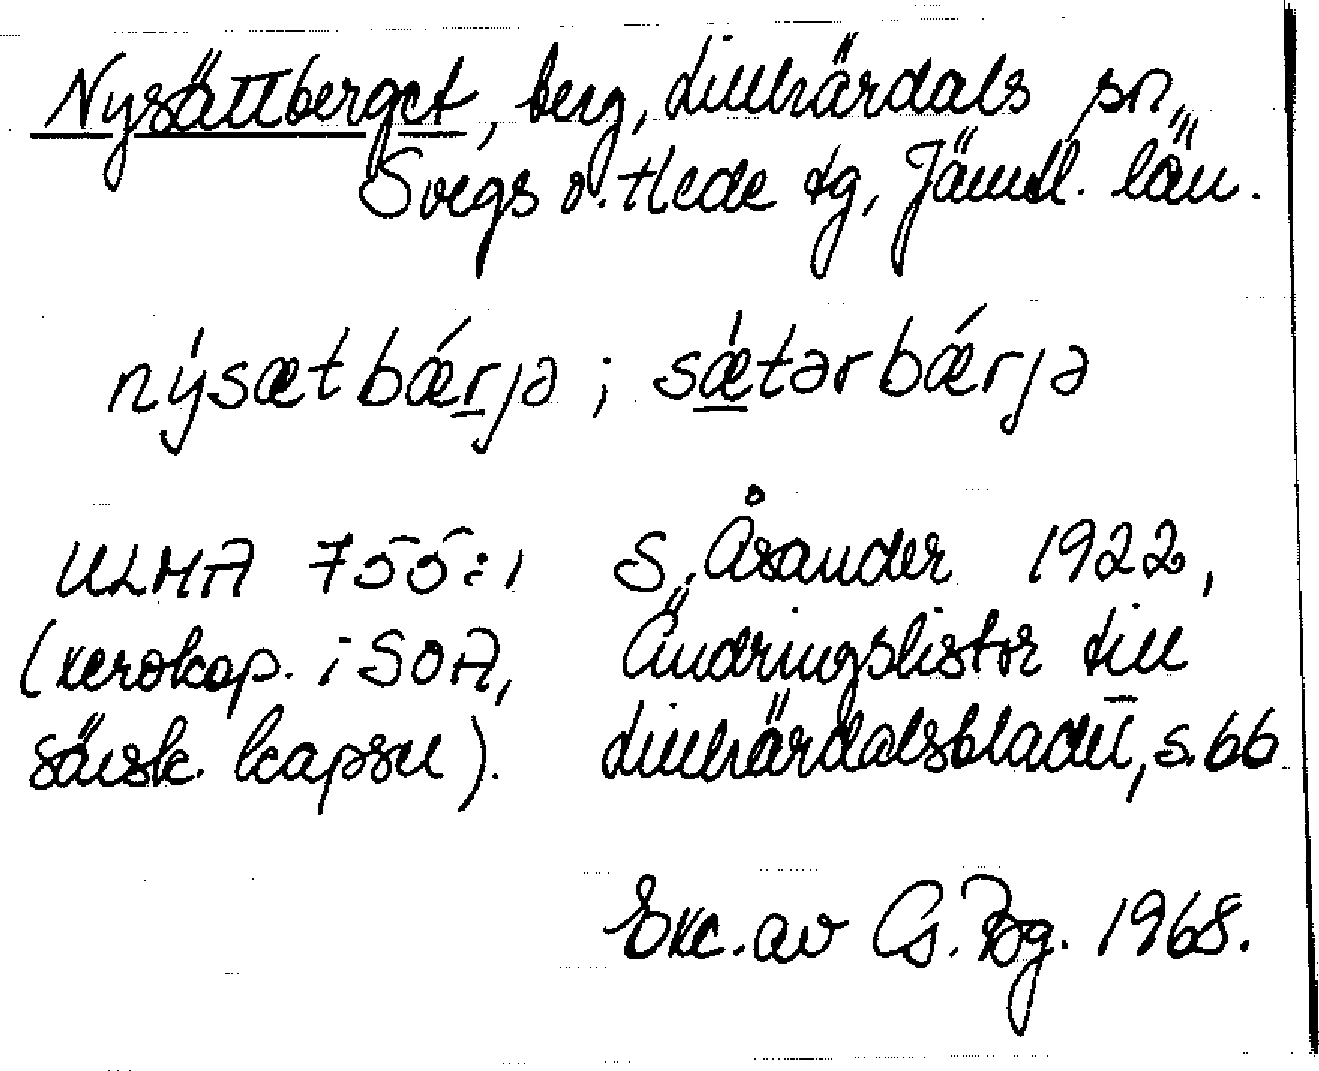 Nysättberget, berg, Lillhärdals sn,
Svegs o. Hede tg, Jämtl. län.
nýsætbǽrjə ; sǽtərbǽrjə
ULMA 755:1 S. Åsander 1922,
(xerokop. i SOA, Ändringslistor till
särsk. kapsel). Lillhärdalsbladet, s. 66
Exc. av G. Bg. 1968.